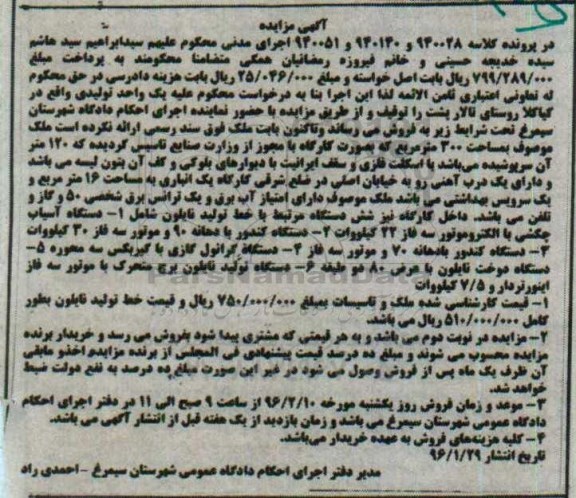 آگهی مزایده
در پرونده کلاسه ۹۴۰۰۲۸ و ۹۴۰۱۴۰ و ۹۴۰۰۵۱ اجرای مدنی محکوم علیهم سیدابراهیم سید هاشم
سیده خدیجه حسینی و خانم فیروزه رمضانیان همگی متضامنا محکومند به پرداخت مبلغ
۷۹۹/۲۸۹/۰۰۰ ریال بابت اصل خواسته و مبلغ ۲۵/۰۴۶/۰۰۰ ریال بابت هزینه دادرسی در حق محکوم
له تعاونی اعتباری ثامن الائمه لذا این اجرا بنا به درخواست محکوم علیه یک واحد تولیدی واقع در
کیاکلا روستای تالار پشت را توقیف و از طریق مزایده با حضور نماینده اجرای احکام دادگاه شهرستان
سیمرغ تحت شرایط زیر به فروش می رساند وتاکنون بابت ملک فوق سند رسمی ارائه نکرده است ملک
موصوف بمساحت ۳۰۰ مترمربع که بصورت کارگاه با مجوز از وزارت صنایع تاسیس گردیده که ۱۲۰ متر
آن سرپوشیده می‌باشد با اسکلت فلزی و سقف ایرانیت با دیوارهای بلوکی و کف آن بتون لیسه می باشد
و دارای یک درب آهنی رو به خیابان اصلی در ضلع شرقی کارگاه یک انباری با مساحت ۱۶ متر مربع و
یک سرویس بهداشتی می باشد ملک موصوف دارای امتیاز آب برق و یک ترانس برق شخصی ۵۰ و گاز و
تلفن می باشد. داخل کارگاه نیز شش دستگاه مرتبط با خط تولید نایلون شامل ۱- دستگاه آسیاب
چکشی با الکتروموتور سه فاز ۲۲ کیلووات ۲- دستگاه کندور با دهانه ۹۰ و موتور سه فاز ۳۰ کیلووات
۳- دستگاه کندور بادهانه ۷۰ و موتور سه فاز ۴- دستگاه گرانول گازی با گیربکس سه محوره ۵-
دستگاه دوخت نایلون با عرض ۸۰ دو طبقه ۶- دستگاه تولید نایلون برج متحرک با موتور سه فاز
اینورتردار و ۷/۵ کیلووات
۱- قیمت کارشناسی شده ملک و تاسیسات بمبلغ ۷۵۰/۰۰۰/۰۰۰ ریال و قیمت خط تولید نایلون بطور
کامل ۵۱۰/۰۰۰/۰۰۰ ریال می باشد.
۲- مزایده در نوبت دوم می باشد و به هر قیمتی که مشتری پیدا شود بفروش می رسد و خریدار برنده
مزایده محسوب می شوند و مبلغ ده درصد قیمت پیشنهادی فی المجلس از برنده مزایده اخذو مابقی
آن ظرف یک ماه پس از فروش وصول می شود در غیر این صورت مبلغ ده درصد به نفع دولت ضبط
خواهد شد.
۳- موعد و زمان فروش روز یکشنبه مورخه ۹۶/۲/۱۰ از ساعت ۹ صبح الی ۱۱ در دفتر اجرای احکام
دادگاه عمومی شهرستان سیمرغ می باشد و زمان بازدید از یک هفته قبل از انتشار آگهی می باشد.
۴- کلیه هزینه‌های فروش به عهده خریدار می‌باشد.
تاریخ انتشار ۹۶/۱/۲۹
مدیر دفتر اجرای احکام دادگاه عمومی شهرستان سیمرغ - احمدی راد
ParsNamadData